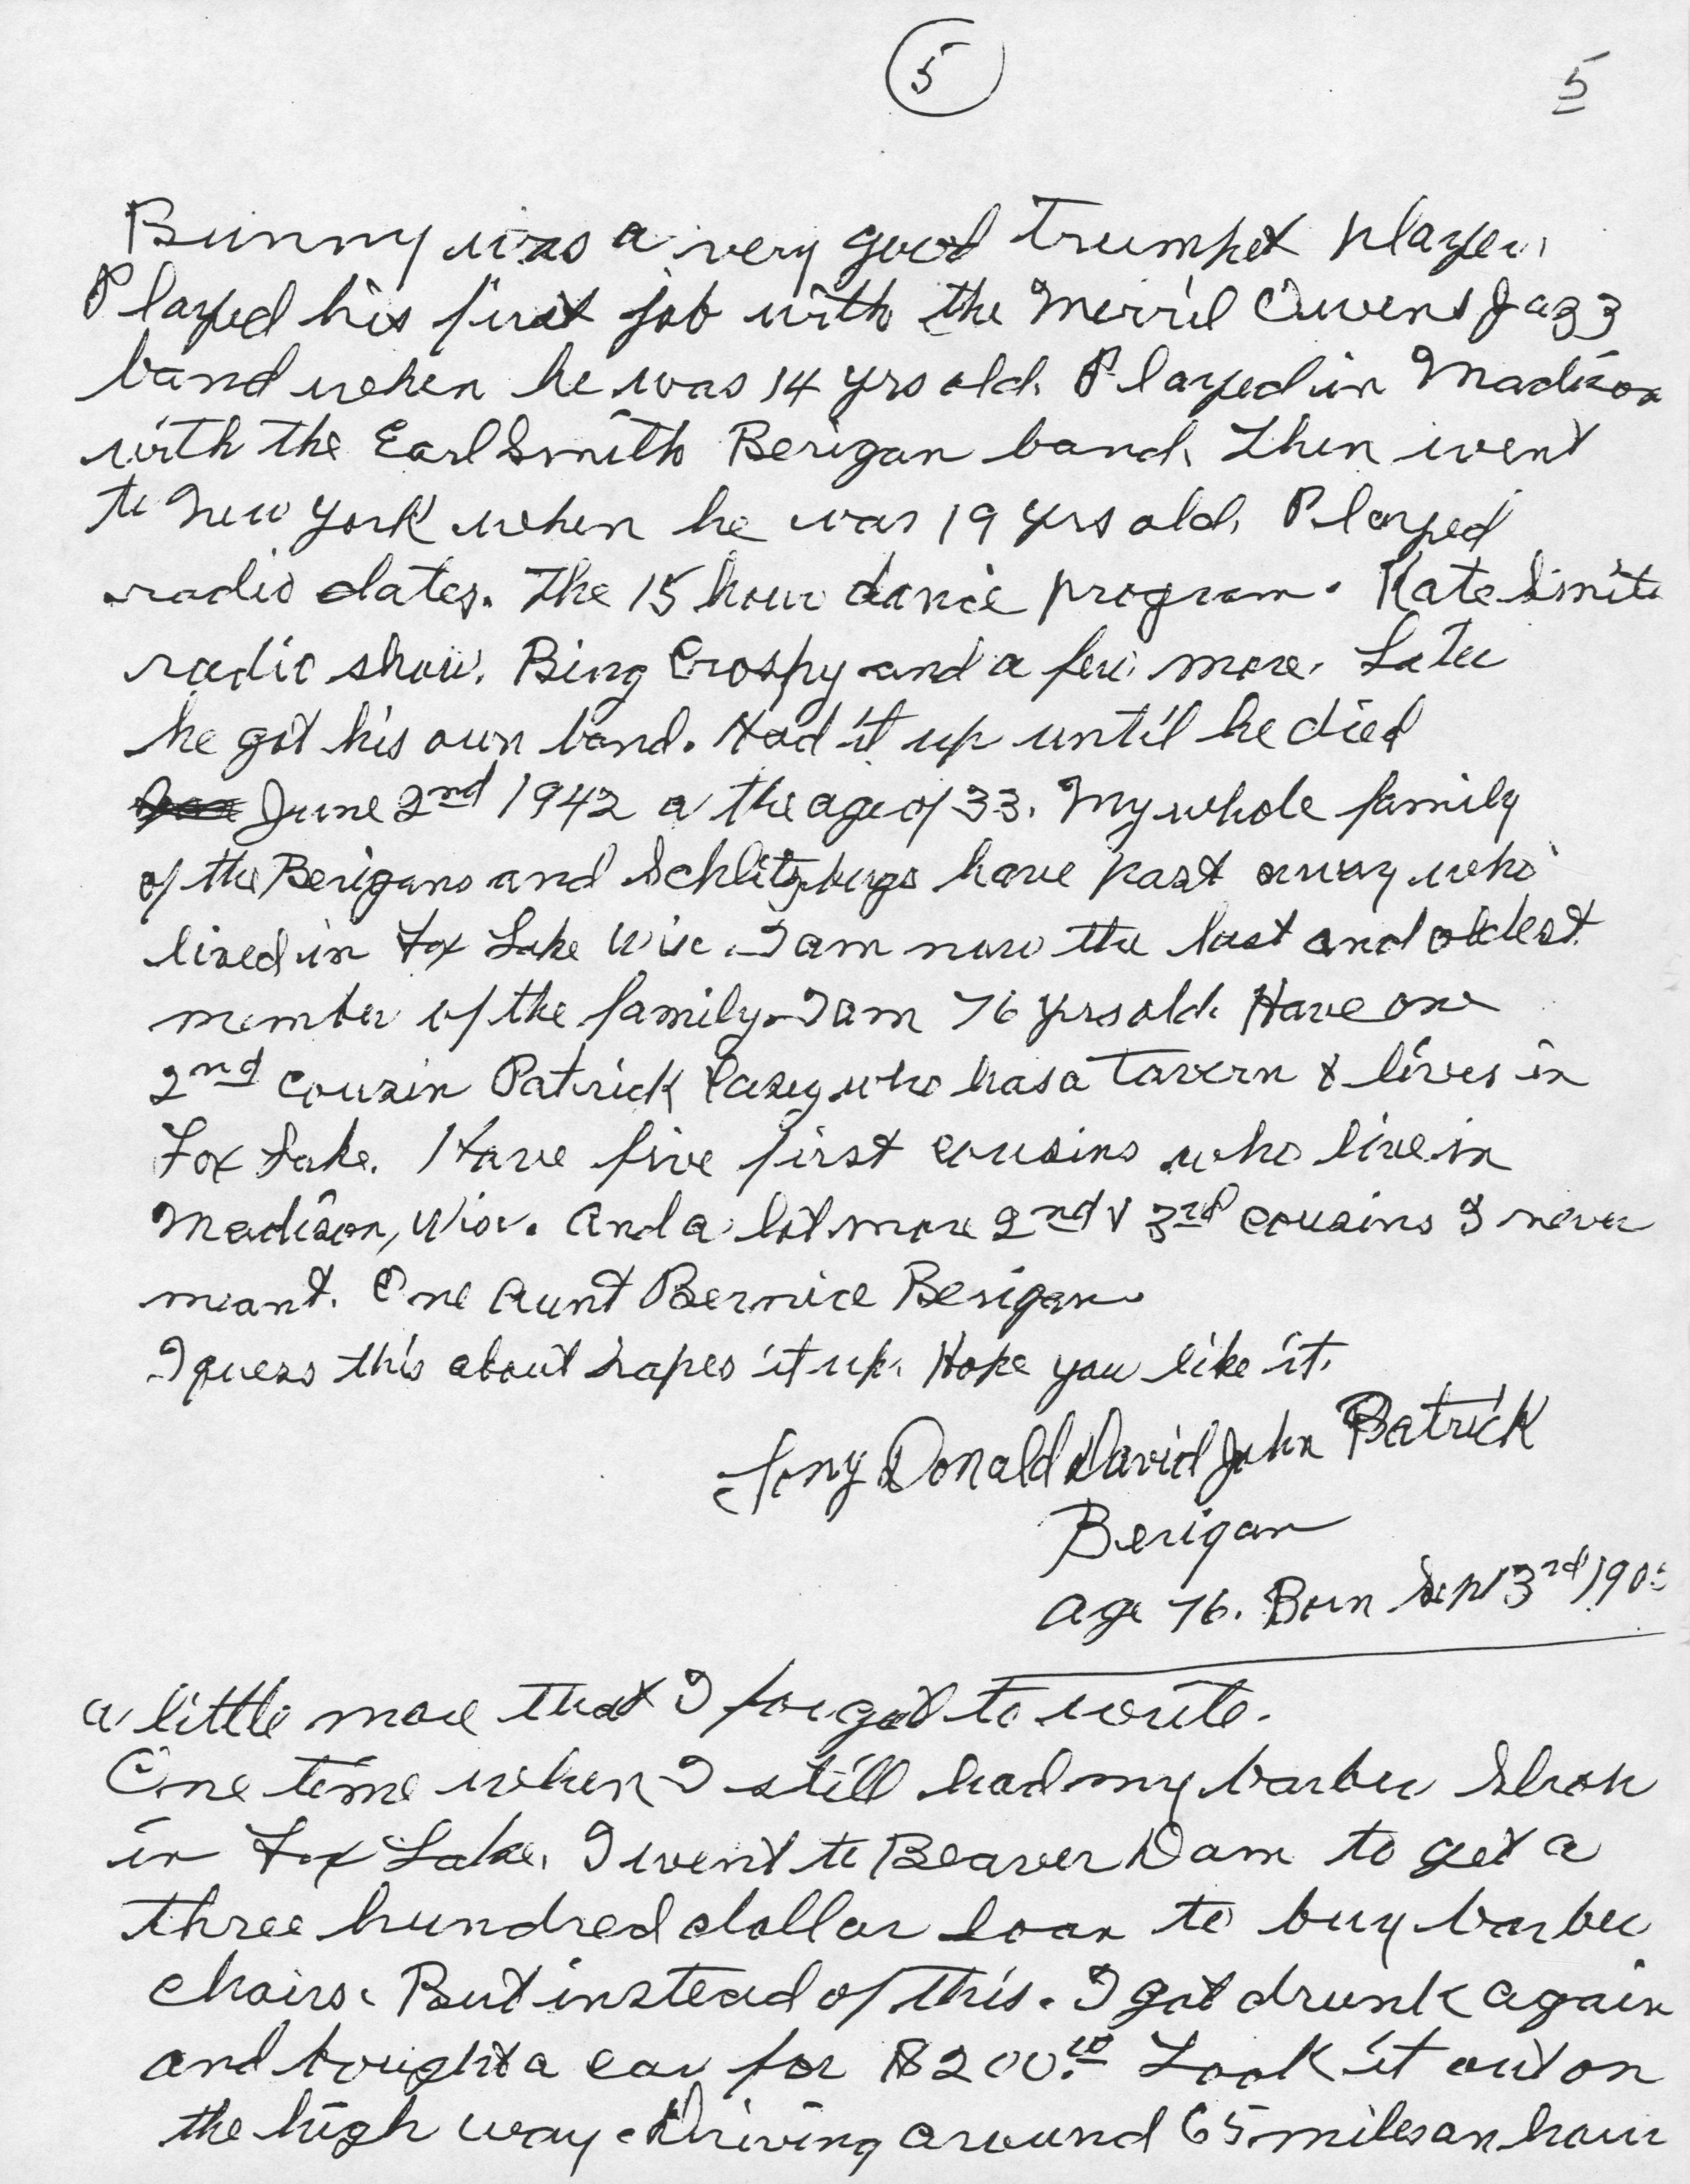 5 5
Bunny was a very good trumpet player.
Played his first job with the Merril Owens Jazz
band when he was 14 yrs old. Played in Madison
with the Earl Smith Berigan band. Then went
to New York when he was 19 yrs old. Played
radio dates. The 15 hour dance program. Kate Smith
radio show. Bing Crospy and a few more. Later
he got his own band. Had it up until he died
June 2nd 1942 a the age of 33. My whole family
of the Berigans and Schlitzbergs have past away who
lived in Fox Lake Wisc. I am now the last and oldest
member of the family. I am 76 yrs old. Have one
2nd cousin Patrick Casey who has a Tavern & lives in
Fox Lake. Have five first cousins who live in
Madison, Wisc. And a lot more 2nd & 3rd cousins I never
meant. One Aunt Bernice Berigan.
I guess this about raps it up. Hope you like it.
Donald David John Patrick
Berigan
age 76. Born Sept 3rd 190
a little more that I forgot to write.
One time when I still had my barber Shop
in Fox Lake. I went to Beaver Dam to get a
three hundred dollar loan to buy barber
chairs. But instead of this. I got drunk again
and bought a car for $200.00 Took it out on
the high way. Driving around 65 miles an hour